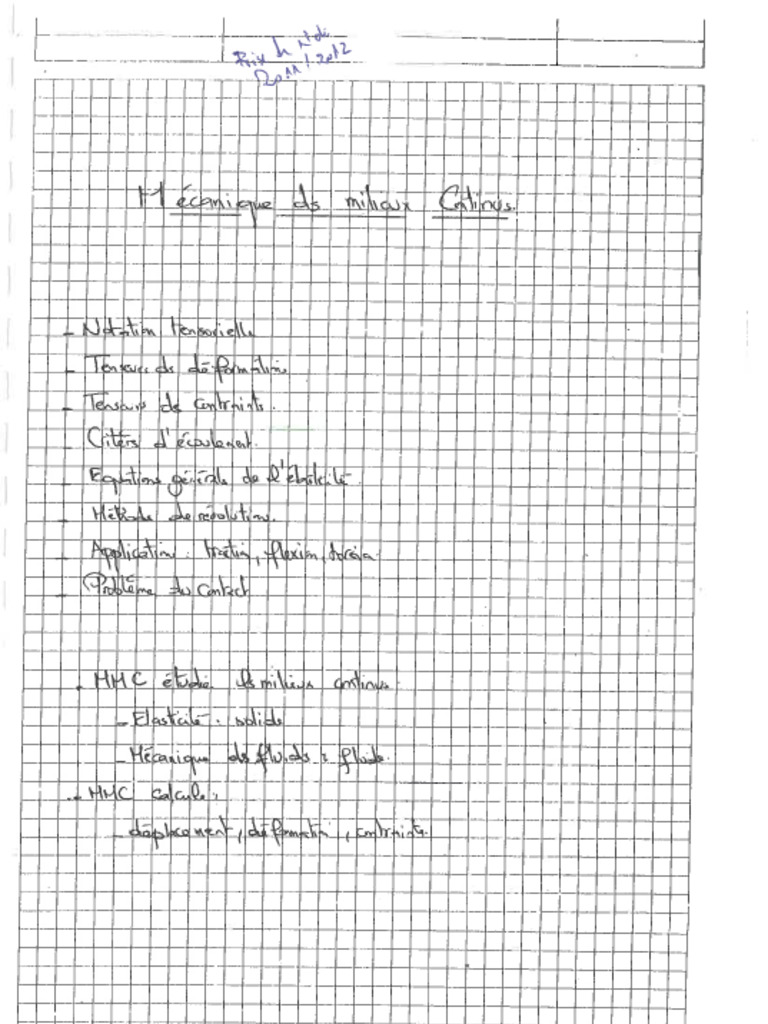 2011/2012
Mécanique ds milieux Continus.
- Notation tensorielle
- Tenseurs ds déformation
- Tenseurs de contraints.
- Critère d'écoulement.
- Equations générals de l'élasticité
- Méthode de résolution.
- Application : traction, flexion, torsion
- Problème du contact
. MMC étudie ls milieux continus.
- Elasticité : solide
- Mécanique ds fluids : fluide.
- MMC calcule :
- déplacement, déformation, contraints.